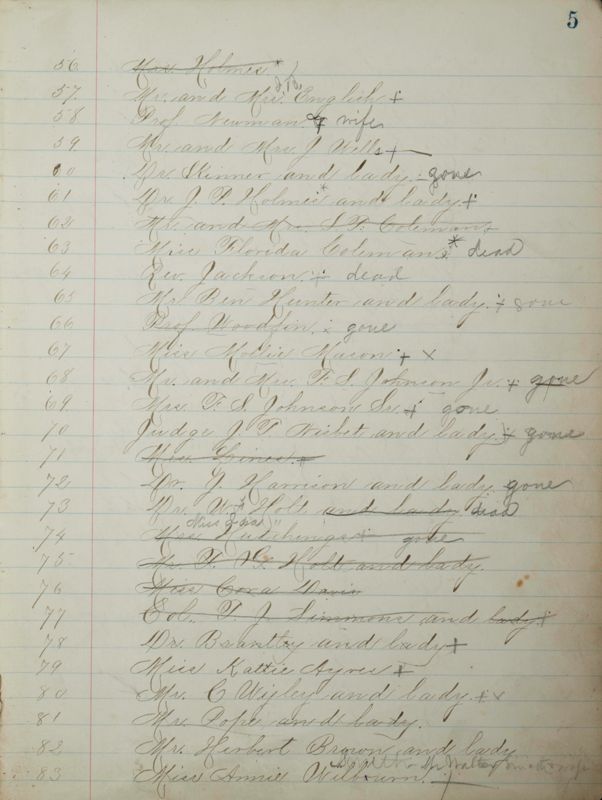 5
56 Mrs. Holmes *
57 Mr. and Mrs. J.H. English +
58 Prof. Newman & wife
59 Mr. and Mrs. J Wells +
60 Dr. Skinner and lady. gone
61 Dr. J. P. Holmes * and lady +
62 Mr. and Mrs. S. T. Coleman +
63 Miss Florida Coleman * dead
64 Rev. Jackson. + dead
65 Mr. Ben Hunter and lady. + gone
66 Prof. Woodfin. gone
67 Miss Mollie Mason + x
68 Mr. and Mrs. F. S. Johnson Jr. + gone
69 Mrs. F. S. Johnson Sr. + gone
70 Judge J. T. Nisbet and lady. + gone
71 Mrs. Lines. +
72 Dr. Y. Harrison and lady gone
73 Dr. W. Holt and lady dead
74 Hutchings + gone
75 Mr. Holt and lady.
76 Miss Cora Davis
77 Col. T. J. Simmons and lady +
78 Dr. Brantley and lady +
79 Miss Kattie Ayres +
80 Mr. C Wigley and lady + x
81 Mr. Pope and lady.
82 Mr. Herbert Brown and lady
83 Miss Annie Wilbourn.